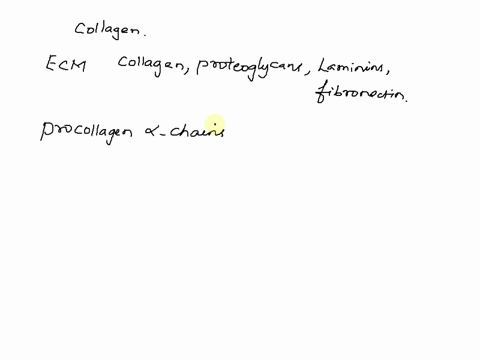 Collagen.
ECM Collagen, proteoglycans, Laminins,
fibronectin.
procollagen α-chains